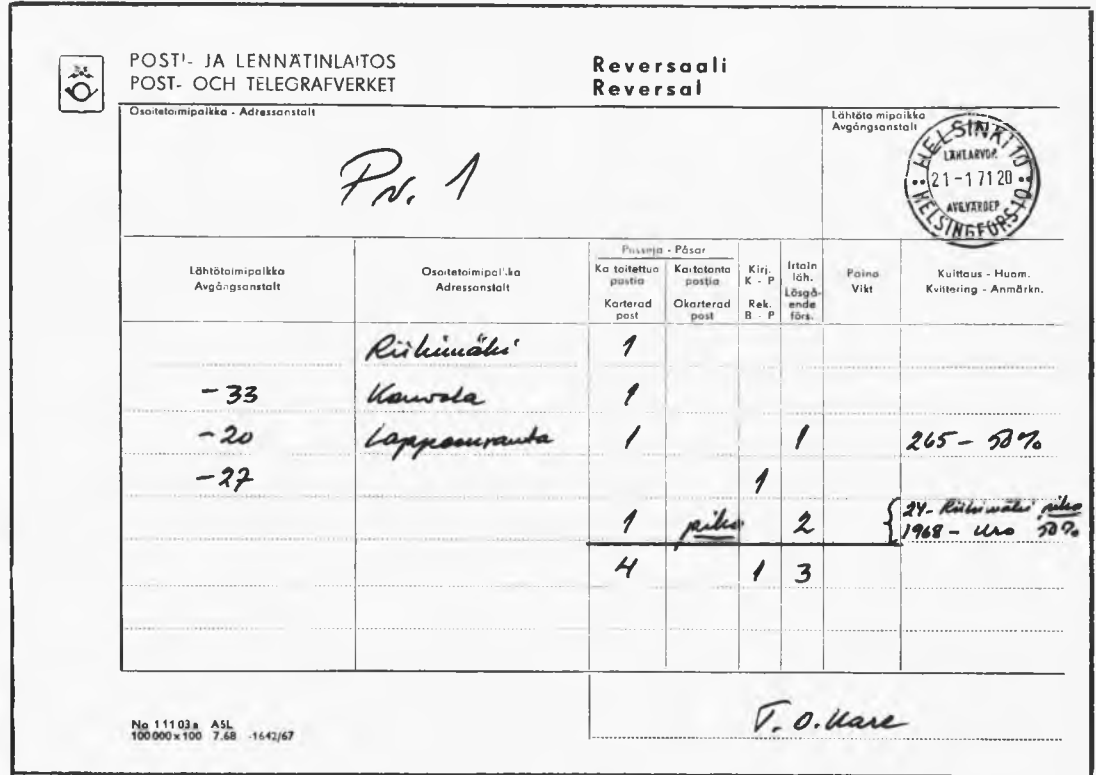 POSTI- JA LENNÄTINLAITOS
POST- OCH TELEGRAFVERKET
Reversaali
Reversal
Osoitetoimipaikka - Adressanstalt
Lähtötoimipaikka
Avgångsanstalt
Pv. 1
HELSINKI 10
LÄHT.ARVOP.
21-1 71 20
AVG.VÄRDEP
HELSINGFORS 10
Lähtötoimipaikka
Avgångsanstalt
Osoitetoimipaikka
Adressanstalt
Pusseja - Påsar
Kartoitettua
postia
Karterad
post
Kartoitonta
postia
Okarterad
post
Kirj.
K - P
Rek.
B - P
Irtain
läh.
Lösgå-
ende
förs.
Paino
Vikt
Kuittaus - Huom.
Kvittering - Anmärkn.
Riihimäki 1
-33 Kouvola 1
-20 Lappeenranta 1 1 265 - 50%
-27 1
1 piko 2 24- Riihimäki piko
1968 - Uro 50%
4 1 3
No 11103a ASL
100000x100 7.68 -1642/67
T. O. Kare